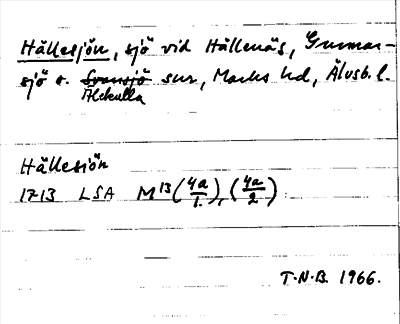 Hällesjön, sjö vid Hällenäs, Gunnar-
sjö o. Svansjö snr, Marks hd, Älvsb. l.
Älekulla
Hällesjön
1713 LSA M13 (4a/1), (4a/2)
T.N.B. 1966.